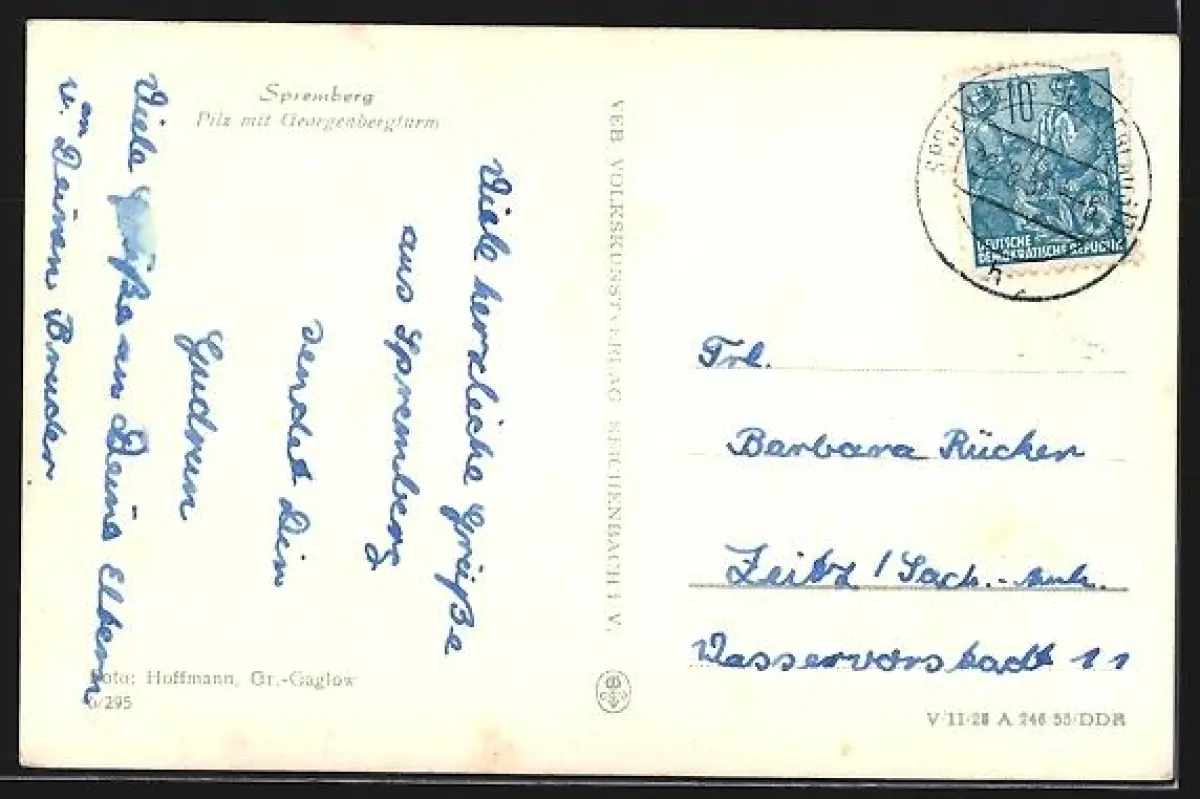 Spremberg
Pilz mit Georgenbergturm
Viele herzliche Grüße
aus Spremberg
sendet Dir
Gudrun
Viele Grüße an Deine Eltern
u. an Deinen Bruder
Foto: Hoffmann, Gr.-Gaglow
6/295
VEB VOLKSKUNSTVERLAG REICHENBACH i. V.
10
DEUTSCHE
DEMOKRATISCHE REPUBLIK
Frl.
Barbara Rücker
Zeitz / Sach.-Anh.
Wasservorstadt 11
V/11/28 A 246 55/DDR